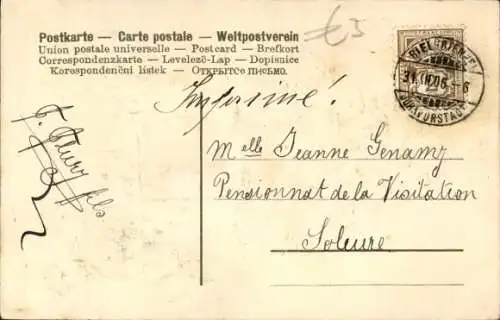 Postkarte — Carte postale — Weltpostverein
Union postale universelle — Postcard — Brefkort
Correspondenzkarte — Levelező-Lap — Dopisnice
Korespondenční lístek — Открытсе письмо.
£5
BIEL (BIENNE)
Imprimé!
Mlle Jeanne Genamy
Pensionnat de la Visitation
Soleure
F. Flury fils